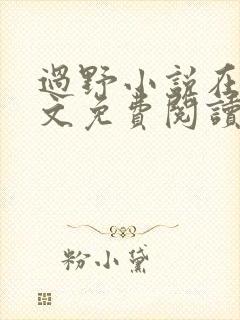 過野小説在
文免費閱讀
粉小黛